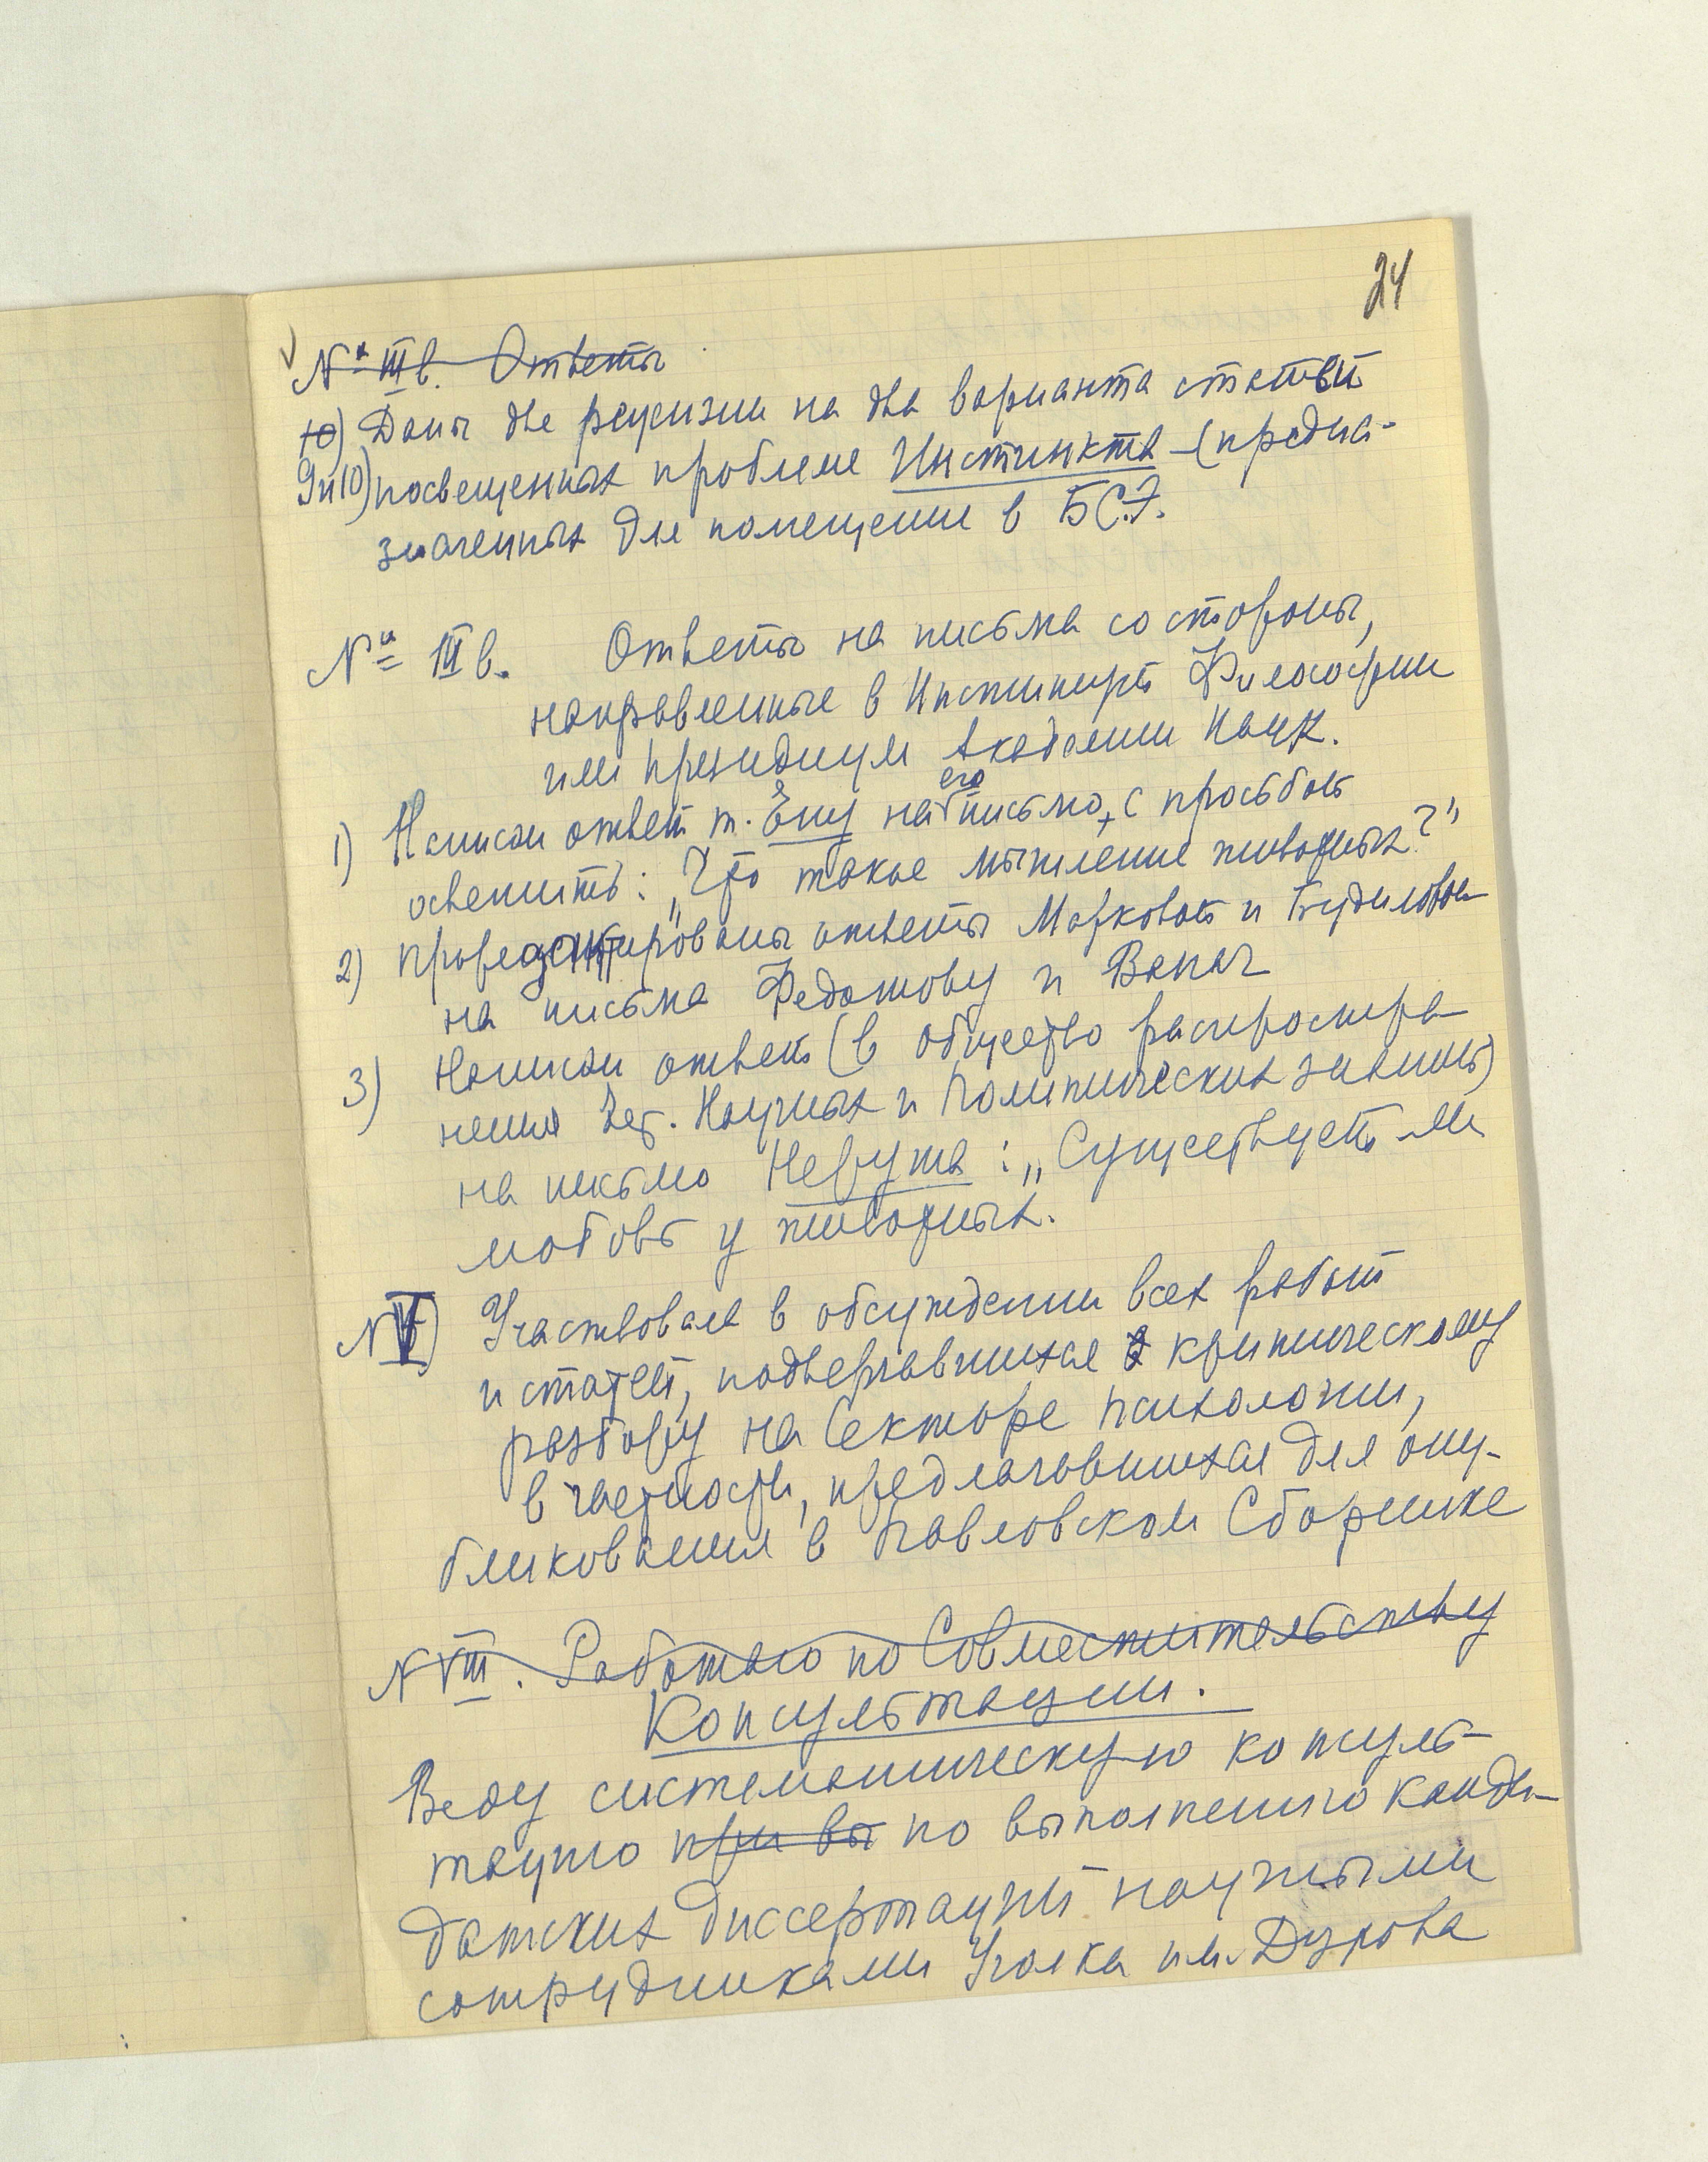 24
№ IIIв. Ответы
10) Даны две рецензии на два варианта статьи
9и10) посвещенных проблеме Инстинкта (предна-
значенных для помещение в БСЭ.
№ IIIв. Ответы на письма со стороны,
направленные в Институт Философии
или Президиум Академии Наук.
1) Написан ответ т. Ену на его письмо, с просьбой
осветить: "Что такое мышление животных?"
2) ответы Марковой и Будиловой
на письма Федотову и
3) Написан ответ (в общество распростра-
нения Научных и Политических знаний)
на письмо : "Существует ли
любовь у животных.
N V) Участвовала в обсуждении всех работ
и статей, подвергавшихся критическому
разбору на Секторе психологии,
в частности, предлагавшихся для опу-
бликования в Павловском Сборнике
N VIII. Работаю по Совместительству
Консультации.
Веду систематическую консуль-
тацию при вы по выполнению канди-
датских диссертаций научными
сотрудниками Уголка им. Дурова